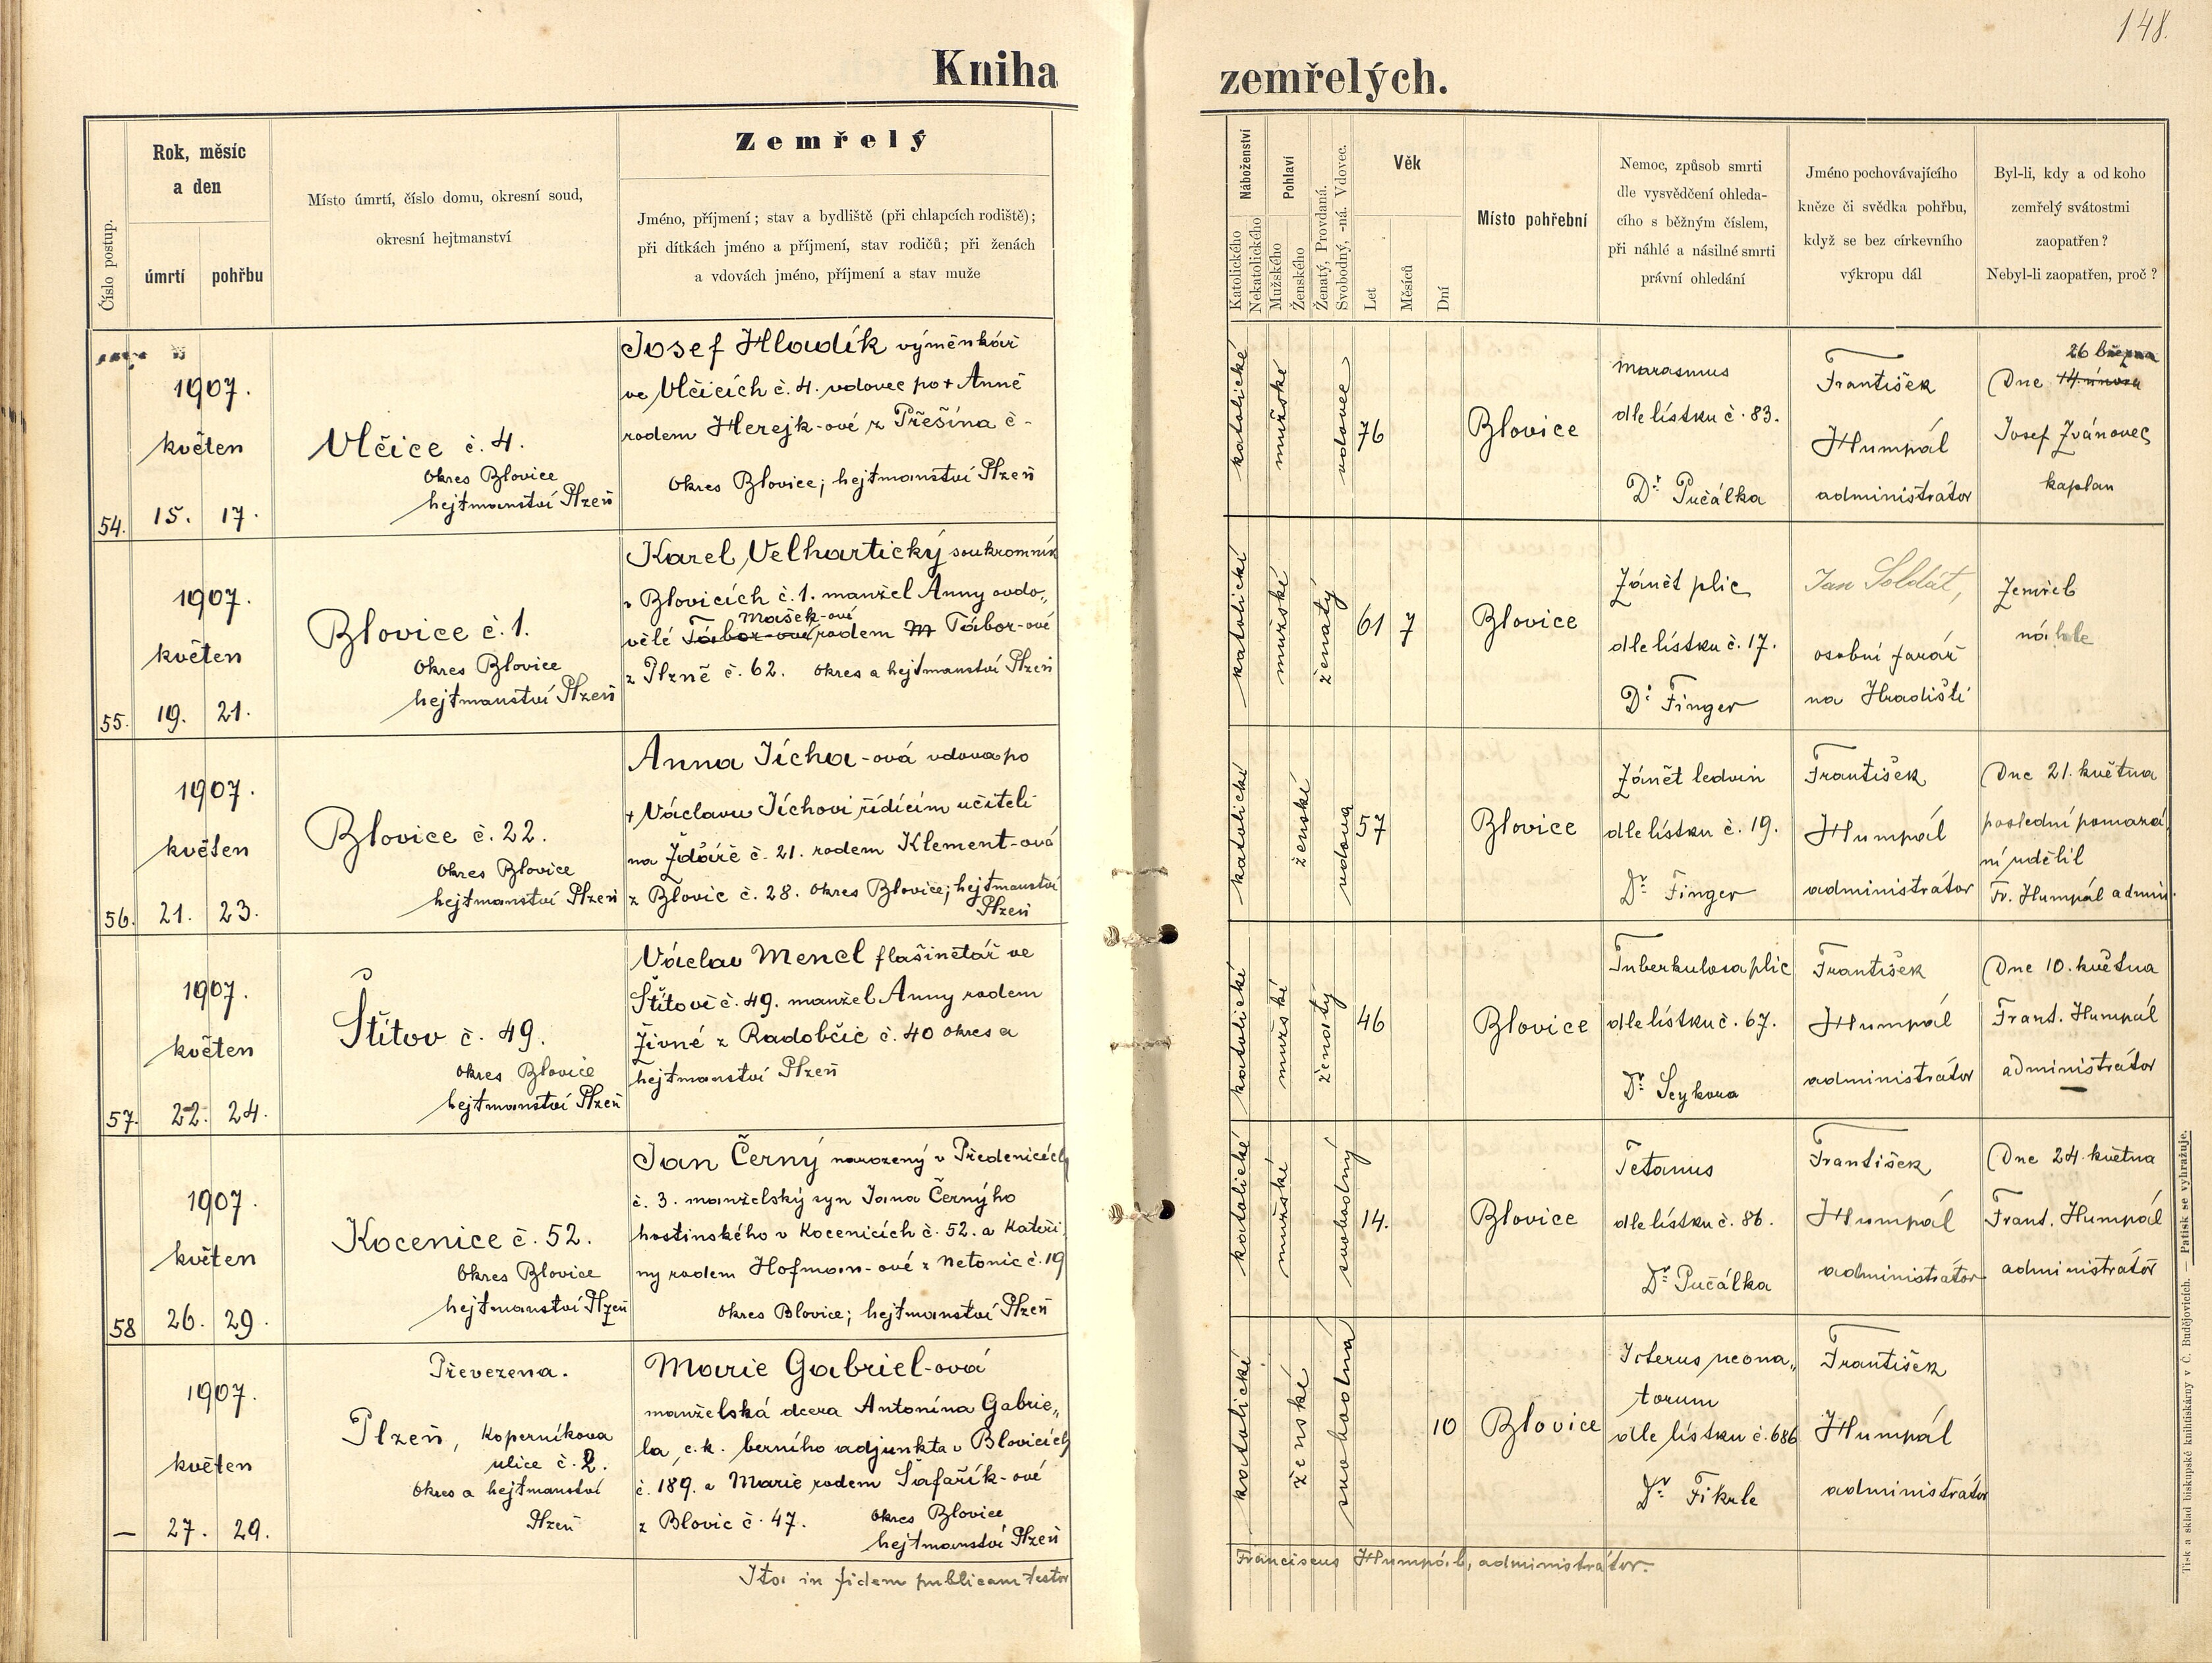 148.
Kniha zemřelých.
Číslo postup.
Rok, měsíc
a den
úmrtí
pohřbu
Místo úmrtí, číslo domu, okresní soud,
okresní hejtmanství
Zemřelý
Jméno, příjmení; stav a bydliště (při chlapcích rodiště);
při dítkách jméno a příjmení, stav rodičů; při ženách
a vdovách jméno, příjmení a stav muže
Náboženství
Katolického
Nekatolického
Pohlaví
Mužského
Ženského
Ženatý, Provdaná.
Svobodný, -ná. Vdovec.
Věk
Let
Měsíců
Dní
Místo pohřební
Nemoc, způsob smrti
dle vysvědčení ohleda-
cího s běžným číslem,
při náhlé a násilné smrti
právní ohledání
Jméno pochovávajícího
kněze či svědka pohřbu,
když se bez církevního
výkropu dál
Byl-li, kdy a od koho
zemřelý svátostmi
zaopatřen?
Nebyl-li zaopatřen, proč?
54.
1907.
květen
15. 17.
Vlčice č. 4.
Okres Blovice
hejtmanství Plzeň
Josef Hladík výměnkář
ve Vlčicích č. 4. vdovec po + Anně
rodem Herejk-ové z Přešína č -
Okres Blovice; hejtmanství Plzeň
katolické
mužské
vdovec
76
Blovice
Marasmus
dle lístku č. 83.
Dr. Pučálka
František
Humpál
administrátor
26 března
Dne 14. února
Josef Ivánovec
kaplan
55.
1907.
květen
19. 21.
Blovice č. 1.
Okres Blovice
hejtmanství Plzeň
Karel Velhartický soukromník
v Blovicích č. 1. manžel Anny ovdo„
Mašek-ové
vělé Tábor-ové rodem M Tábor-ové
z Plzně č. 62. okres a hejtmanství Plzeň
katolické
mužské
ženatý
61 7
Blovice
Zánět plic
dle lístku č. 17.
Dr. Finger
Jan Soldát,
osobní farář
na Hradišti
Zemřel
náhle
56.
1907.
květen
21. 23.
Blovice č. 22.
Okres Blovice
hejtmanství Plzeň
Anna Jícha-ová vdova po
+ Václavu Jíchovi řídícím učiteli
na Ždáře č. 21. rodem Klement-ová
z Blovic č. 28. Okres Blovice; hejtmanství
Plzeň
katolické
ženské
vdova
57
Blovice
Zánět ledvin
dle lístku č. 19.
Dr. Finger
František
Humpál
administrátor
Dne 21. května
poslední pomazá
ní udělil
Fr. Humpál admin.
57.
1907.
květen
22. 24.
Štítov č. 49.
Okres Blovice
hejtmanství Plzeň
Václav Mencl flašinetář ve
Štítově č. 49. manžel Anny rodem
Živné z Radobčic č. 40 okres a
hejtmanství Plzeň
katolické
mužské
ženatý
46
Blovice
Tuberkulosa plic
dle lístku č. 67.
Dr. Seykora
František
Humpál
administrátor
Dne 10. května
Frant. Humpál
administrátor
58
1907.
květen
26. 29.
Kocenice č. 52.
Okres Blovice
hejtmanství Plzeň
Jan Černý narozený v Předenicích
č. 3. manželský syn Jana Černýho
hostinského v Kocenicích č. 52. a Kateři
ny rodem Hofman-ové z Netonic č. 19
Okres Blovice; hejtmanství Plzeň
katolické
mužské
svobodný
14.
Blovice
Tetanus
dle lístku č. 86.
Dr. Pučálka
František
Humpál
administrátor
Dne 24. května
Frant. Humpál
administrátor
—
1907.
květen
27. 29.
Převezena.
Plzeň, Koperníkova
ulice č. 2.
Okres a hejtmanství
Plzeň
Marie Gabriel-ová
manželská dcera Antonína Gabrie„
la, c. k. berního adjunkta v Blovicích
č. 189. a Marie rodem Šafařík-ové
z Blovic č. 47. Okres Blovice
hejtmanství Plzeň
katolické
ženské
svobodná
10
Blovice
Icterus neona„
torum
dle lístku č. 686
Dr. Fikrle
František
Humpál
administrátor
Ita in fidem publicam testor
Franciscus Humpál, administrátor.
Tisk a sklad biskupské knihtiskárny v Č. Budějovicích. — Patisk se vyhražuje.